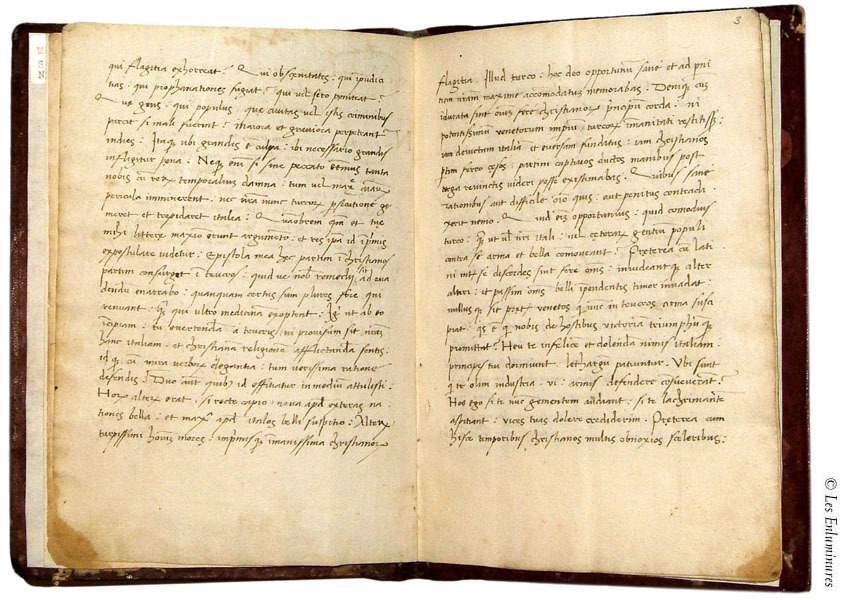 qui flagitia exhorreat? Qui obscenitates: qui ipudici
tias: qui prophanationes fugiat? qui vel sero peniteat?
Que gens: qui populus: que civitas vel istis criminibus
parcit si mali fuerint? maiora et graviora perpetrant
indies: Itaq ubi grandis e culpa: ibi necessario grandis
infligitur pena: Neq eni si sine peccato tanta
nobis cu rerum temporalium damna: tum vel
pericula imminerent: nec nunc turcorum
meret et trepidaret italia: Quaobrem et tue
mihi littere maxio erunt argumeto: et res ipa id ipmis
expostulare videtur: Epistola mea hec partim i christianos
partim consurget i teucros: quid ve remedii ad eva
dendu enarrabo: quanquam certus sum plures fore qui
renuant: qui ultro medicina exoptent: Igr ut ab eo
icipiam: tu evertenda a teucris: ni provisum sit
hanc italiam: et christiana religione afflictanda sentis:
id q cu mira verborum elegantia: tum verissima ratione
defendis: Duo aut quib id efficiatur in mediu attulisti:
Horum alterum erat: si recte capio: nova apd exteras na
tiones bella: et apd italos belli suspitio: Alterum
turpissimi mores: impmisq imanissima christianorum
3
flagitia. Illud turco: hoc deo opportunu sane et ad
maxime accomodatum memorabas: Deniq
idurata sint fere christianorum principum corda: ni
potentissimu venetorum imperiu turcorum imanitati
iam devictam italia et eversam funditus: iam christianos
ptim ferro cesos: partim captivos ductos manibus post
terga revinctis videri posse existimabas: Quibus sane
rationibus aut difficile quis: aut penitus contradi
xerit nemo: Quid opportunius: quid comodius
turco: ut vel viri itali: vel ceterarum gentiu populi
contra se arma et bella comoveant? Preterea cu lati
ni int se discordes sint fere omnes: invideantq alter
alteri: et passim belli ipendentis timor invadat:
nullus q sit preter venetos q in teucros arma susci
piat: qs e q nobis de hostibus victoria triumphuq
promittat? Heu te infelice et dolenda nimis italiam:
principes tui dormiunt: lethargu patiuntur. Ubi sunt
q te olim industria: vi: armis: defendere cosueverat?
Hos ego si te nuc gementem audiant: si te lachrimante
aspitiant: vices tuas dolere crediderim. Preterea cum
hisce temporibus christianos multis obnoxios sceleribus:
© Les Enluminures